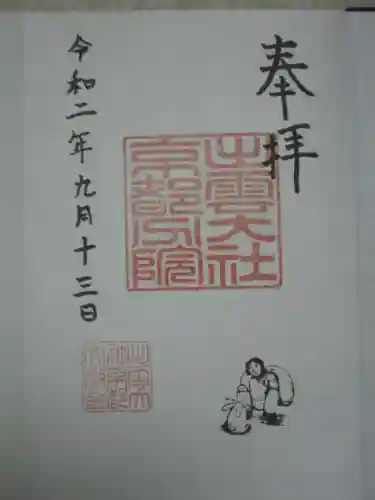 奉拝
出雲大社
京都分院
令和二年九月十三日